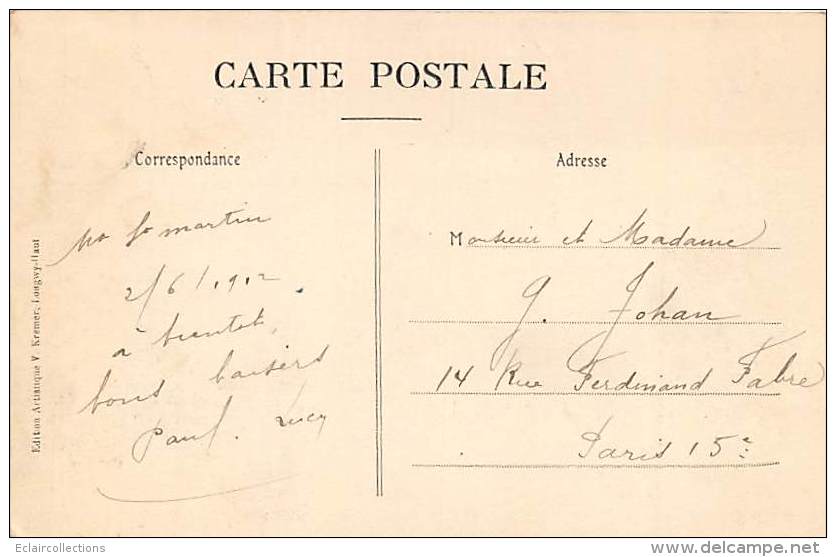 CARTE POSTALE
Correspondance
Mt St martin
2/6/1912
a bientot,
bons baisers
Paul. Lucy
Adresse
Monsieur et Madame
G. Johan
14 Rue Ferdinand Fabre
Paris 15e
Edition Artistique V. Kremer, Longwy-Haut
Eclaircollections
delcampe.net